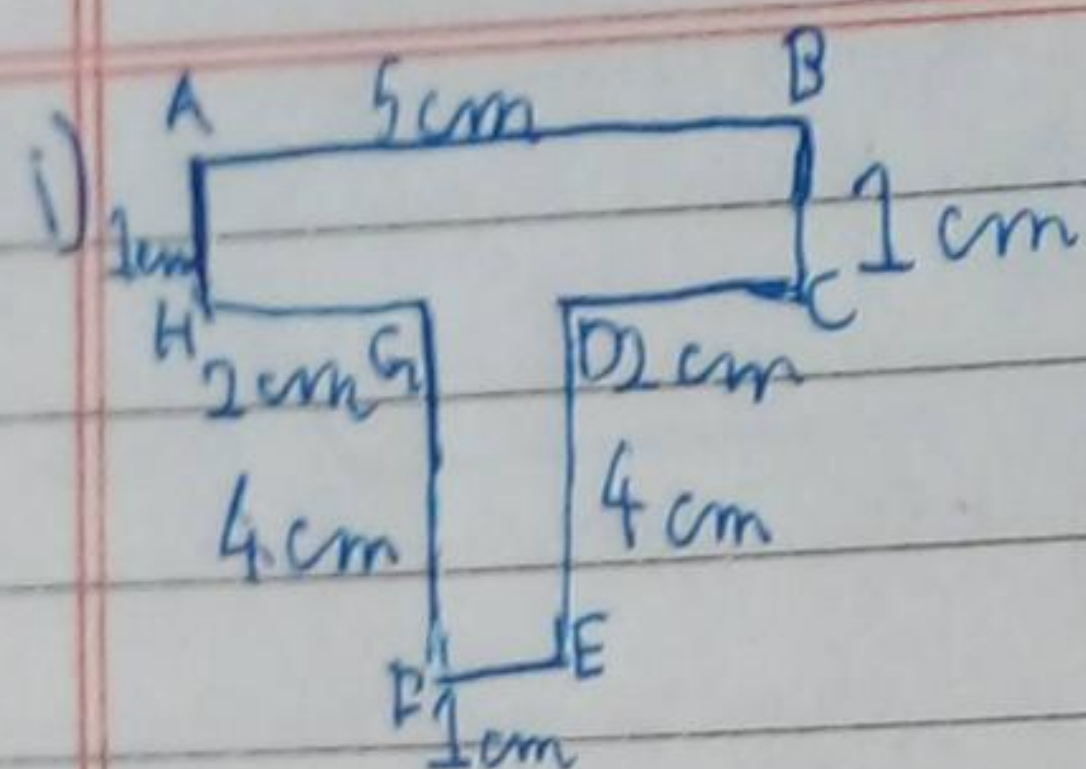 A 5cm B
i) 1cm 1 cm
H C
2cm G D 2 cm
4 cm 4 cm
F E
1cm